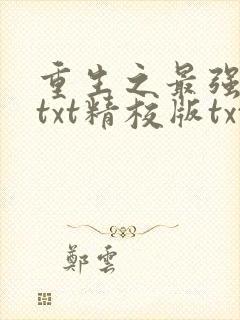 重生之最强
txt精校版tx
鄭雲